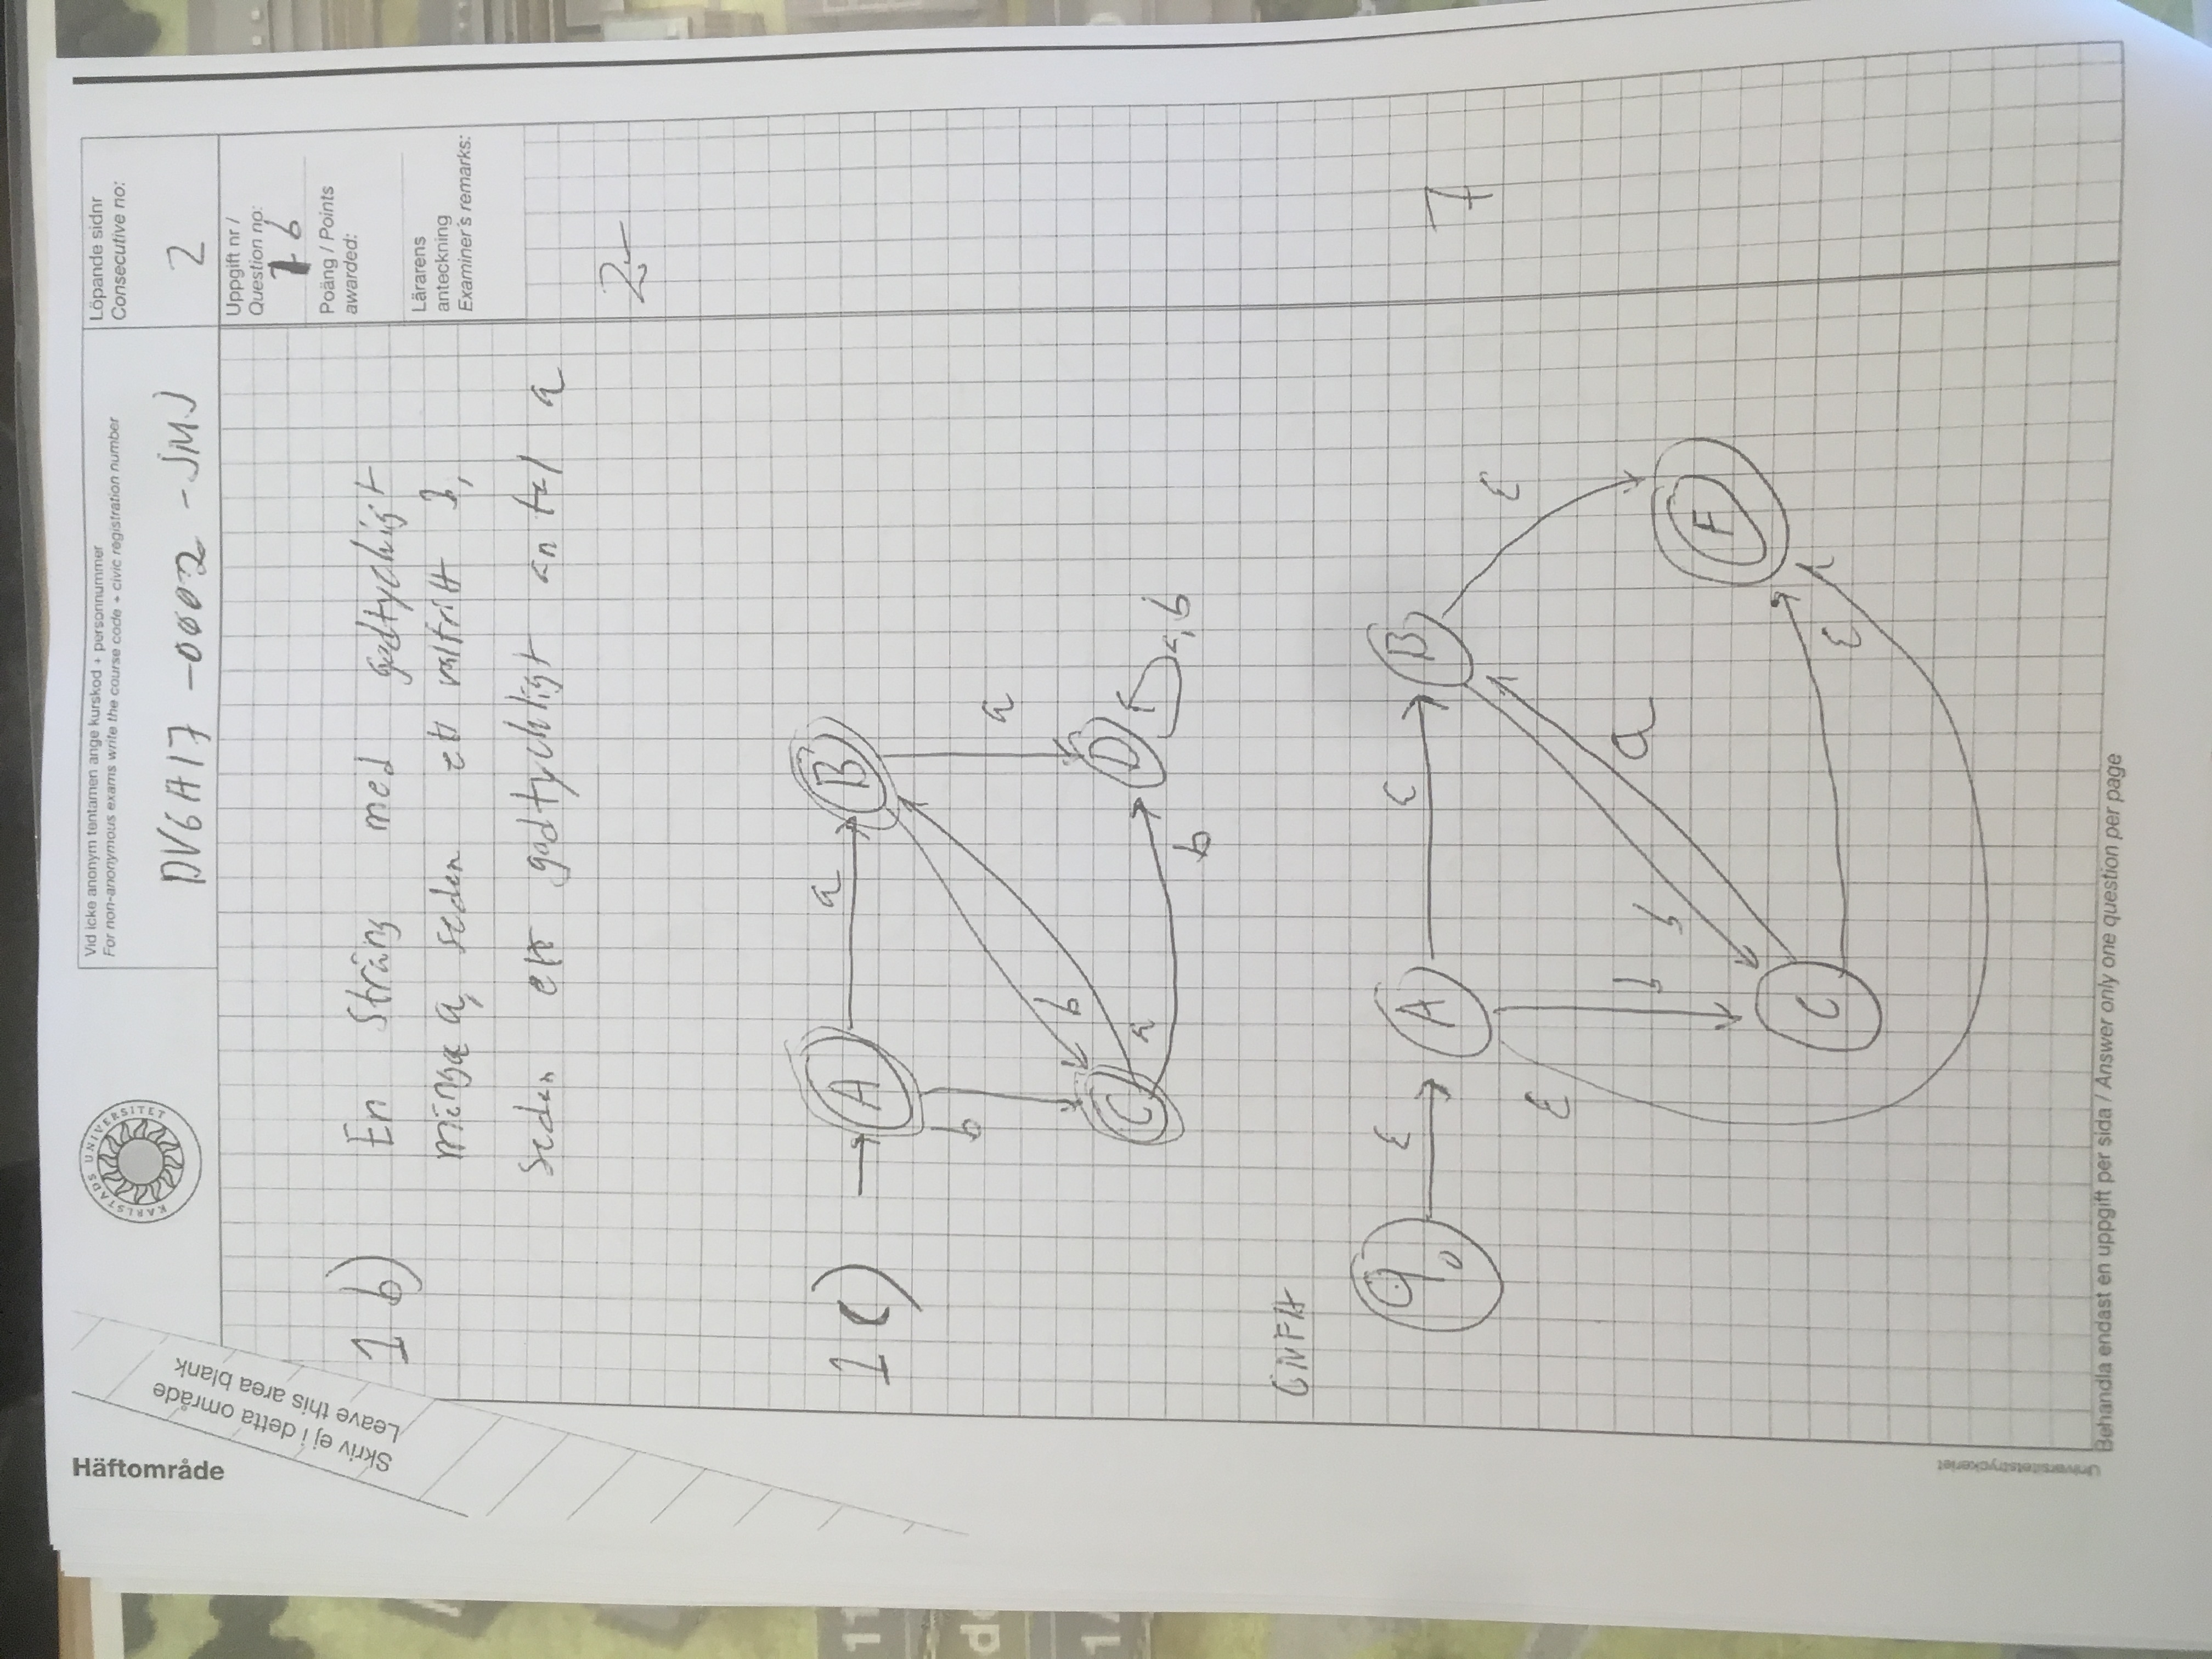 Häftområde
Skriv ej i detta område
Leave this area blank
KARLSTADS UNIVERSITET
Vid icke anonym tentamen ange kurskod + personnummer
For non-anonymous exams write the course code + civic registration number
DV6A17 -0002 -JMJ
Löpande sidnr
Consecutive no:
2
Uppgift nr /
Question no:
1b
Poäng / Points
awarded:
Lärarens
anteckning
Examiner's remarks:
1b) En sträng med godtychigt
många a, sedan ett valfritt b,
sedan ett godtychligt antal a
2-
1c) A a B
b
a
b
C a D
a,b
b
GNFA
q0 ε A ε B
7
ε
ε
b b a
F
C
ε
Universitetstryckeriet
Behandla endast en uppgift per sida / Answer only one question per page